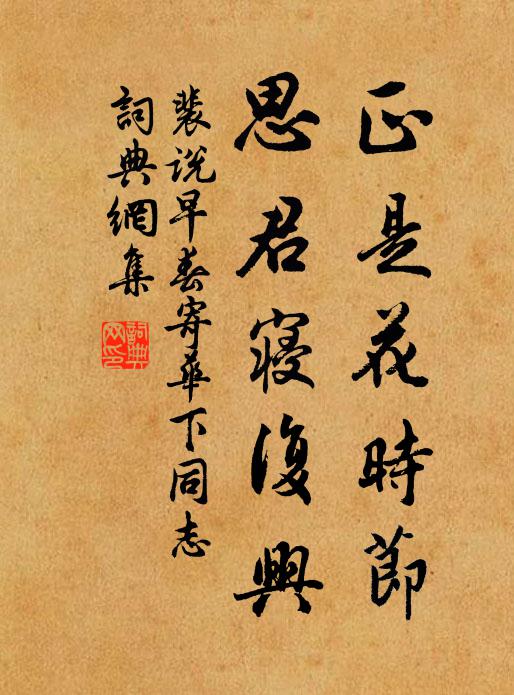 正是花時節
思君寢復興
裴說早春寄華下同志
詞典網集
詞典網印